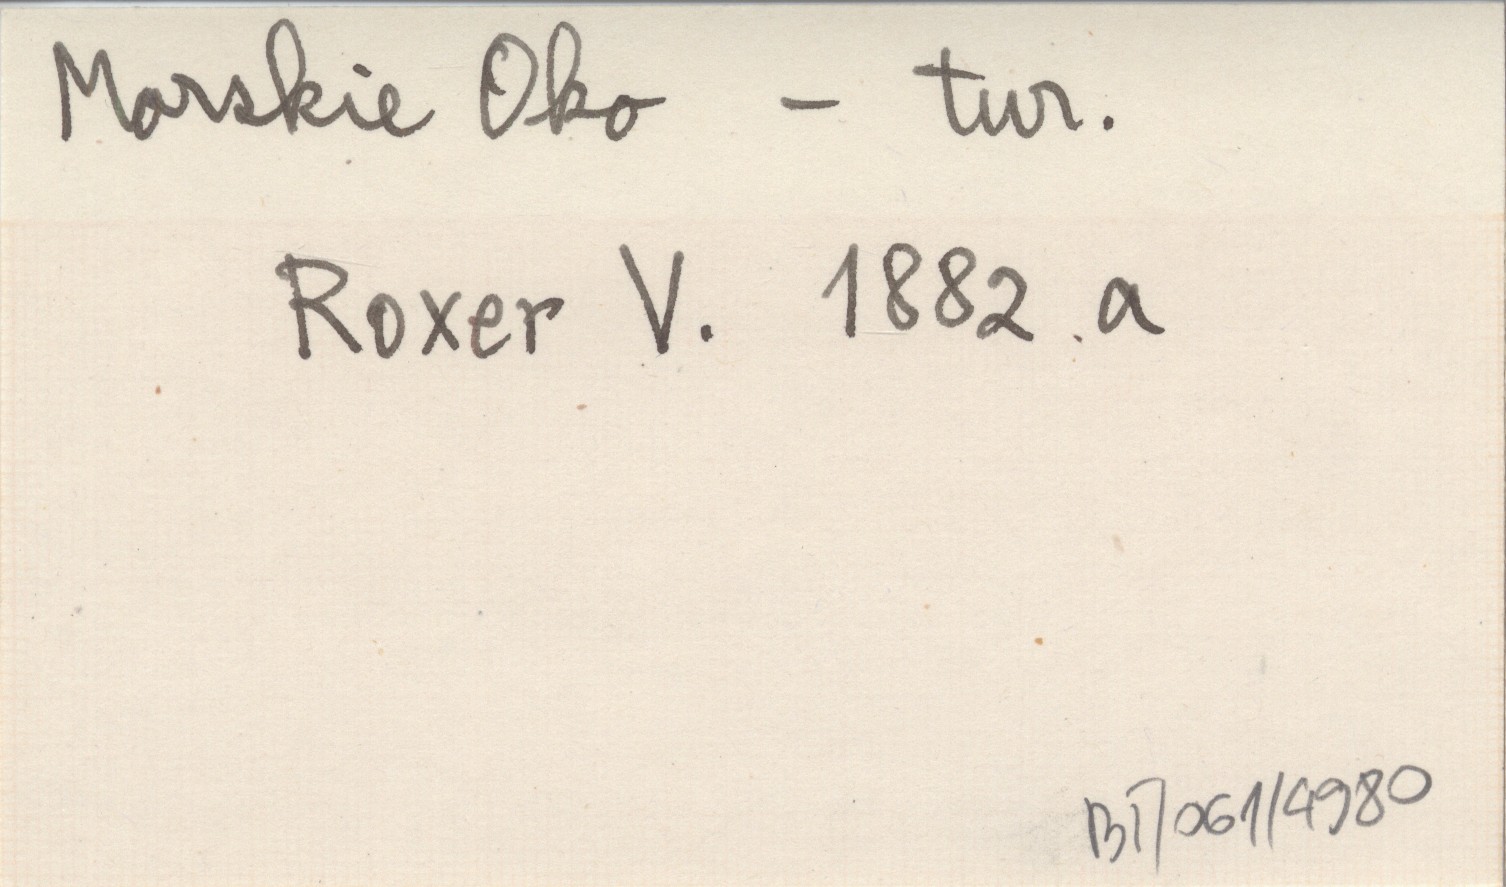 Morskie Oko - tur.
Roxer V. 1882.a
BT/061/4980